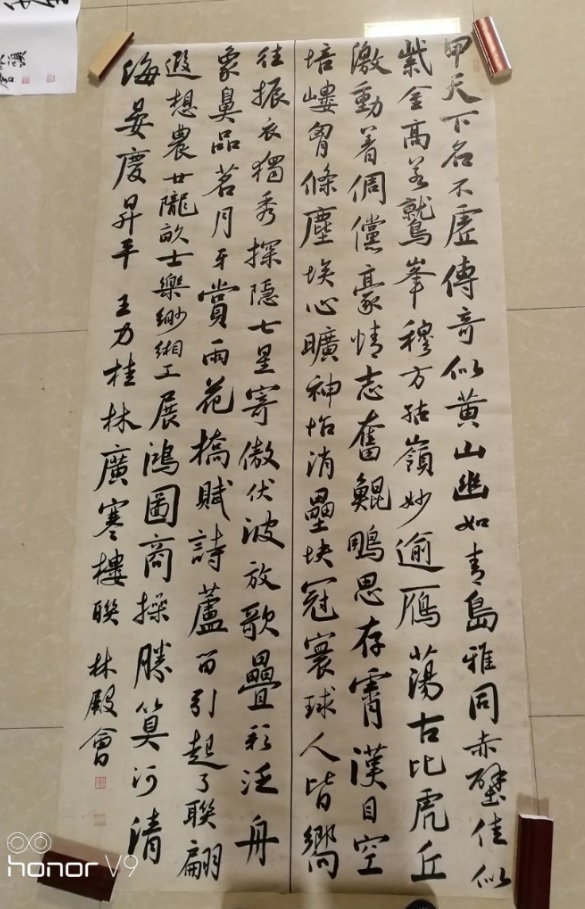 甲天下名不虛傳奇似黄山幽如青島雅同赤壁佳似
紫金高若鷲峯穆方牯嶺妙逾雁蕩古比虎丘
激動着倜儻豪情志奮鯤鵬思存霄漢目空
培嶁胷滌塵埃心曠神怡消壘块冠寰球人皆嚮
往振衣獨秀探隱七星寄傲伏波放歌疊彩泛舟
象鼻品茗月牙賞雨花橋賦詩蘆笛引起了聯翩
遐想農廿隴畝士樂缈緗工展鴻圖商操勝算河清
海晏慶昇平 王力桂林廣寒樓聯 林殿會
honor V9